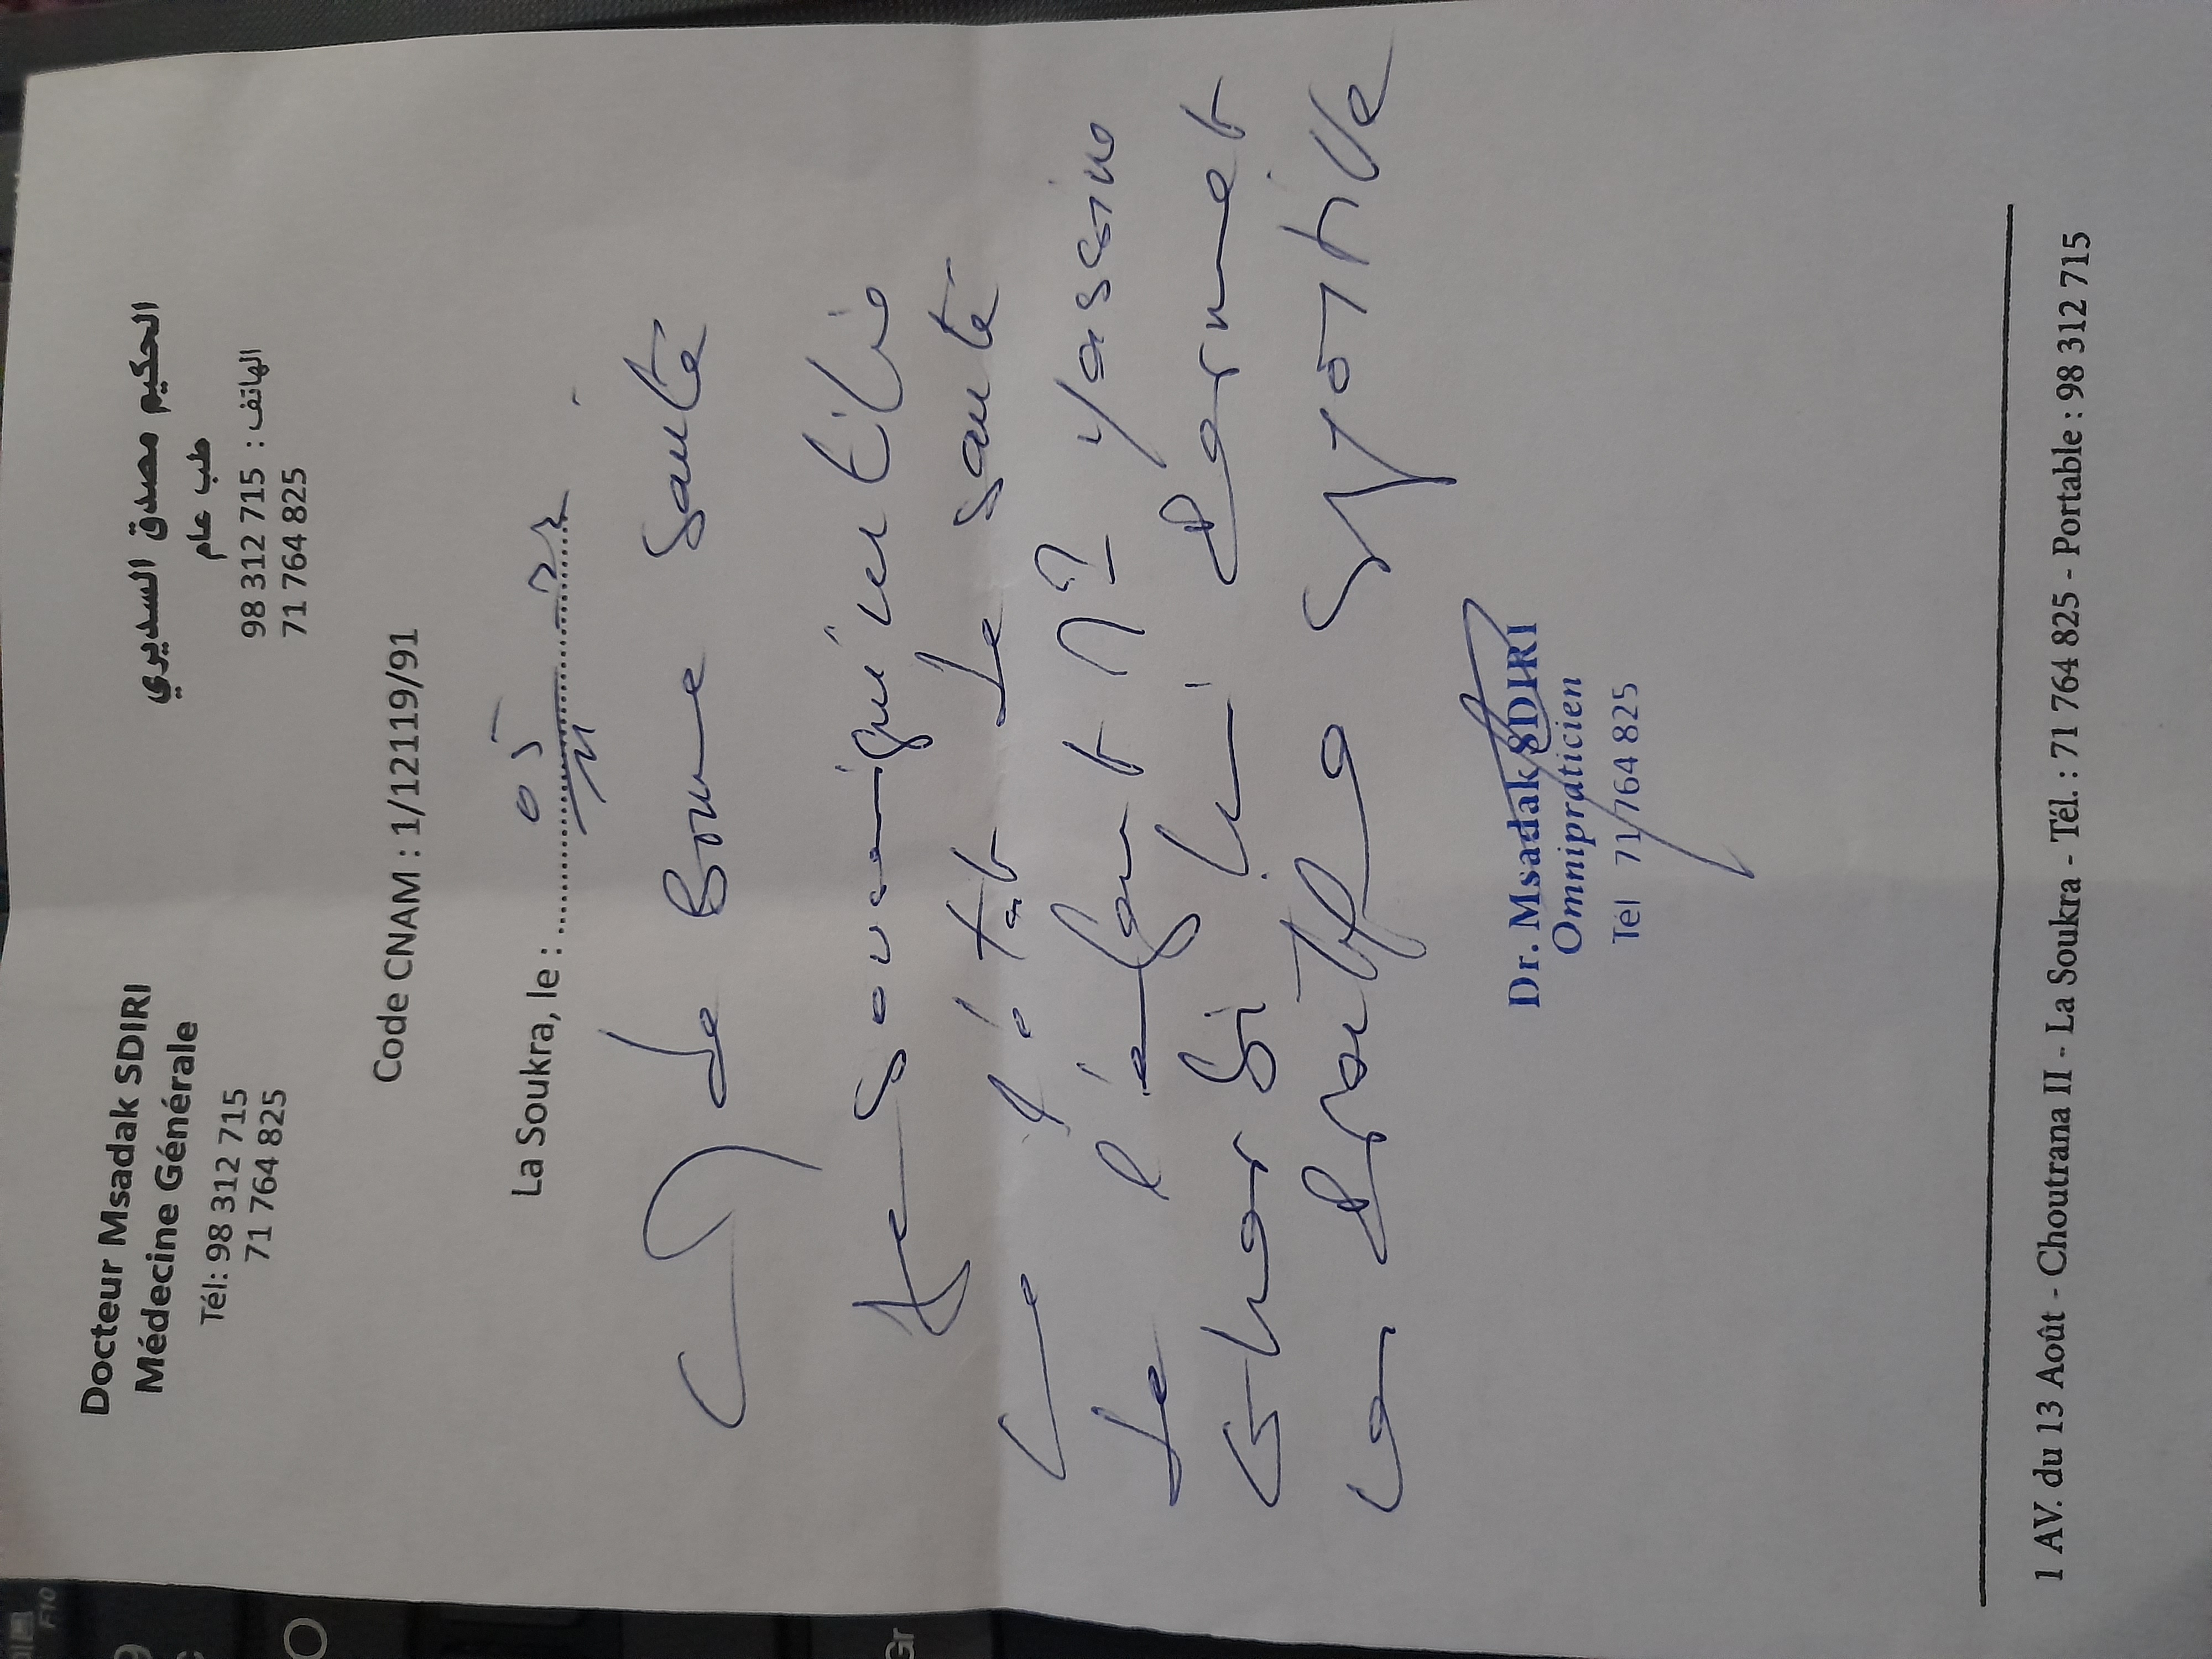 Docteur Msadak SDIRI
Médecine Générale
Tél: 98 312 715
71 764 825
الحكيم مصدق السديري
طب عام
الهاتف : 98 312 715
71 764 825
Code CNAM : 1/12119/91
La Soukra, le : 05
de bonne santé
Je soussigné certifie
que l'état de santé
de l'enfant Yassine
lui permet
la pratique sportive
Dr. Msadak SDIRI
Omnipraticien
Tél 71 764 825
1 AV. du 13 Août - Choutrana II - La Soukra - Tél. : 71 764 825 - Portable : 98 312 715
F10
Gr